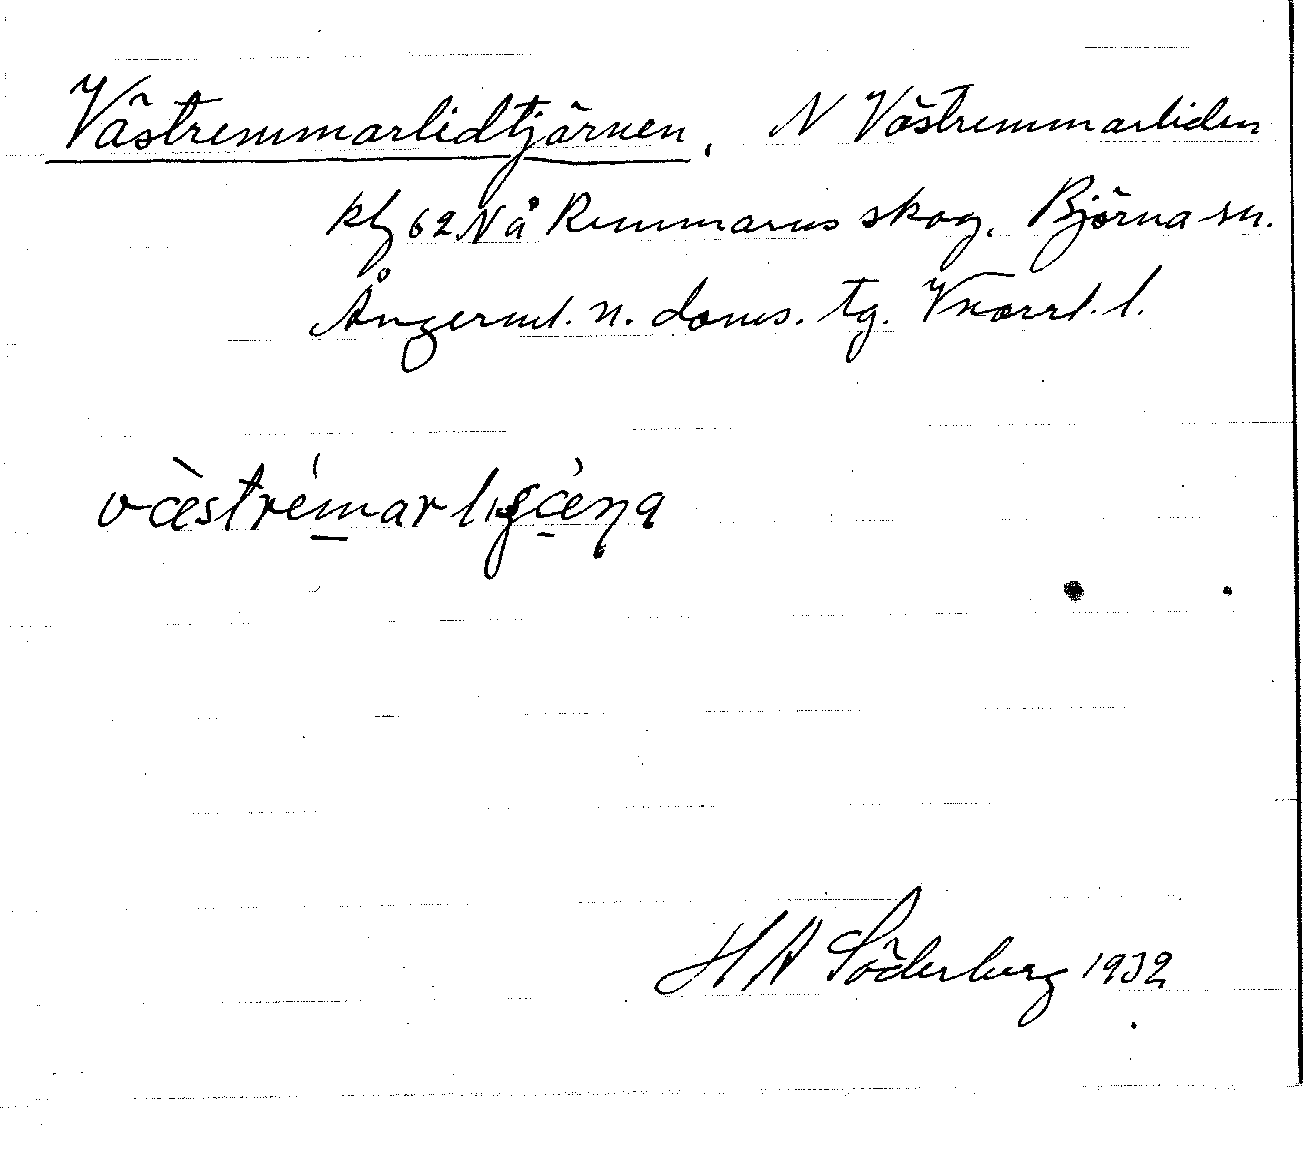 Västremmarlidtjärnen. N Västremmarliden
kbf 62 N å Remmarns skog. Björna sn.
Ångerml. n. doms. tg. Vnorrl. l.
væ̀strémarli
H A Söderberg 1932